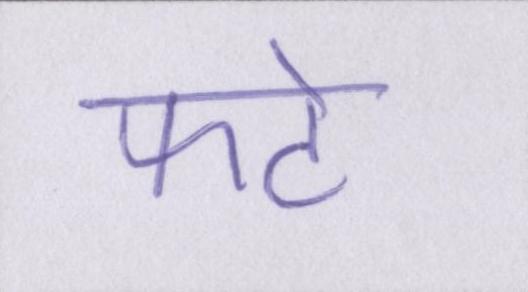 फटे